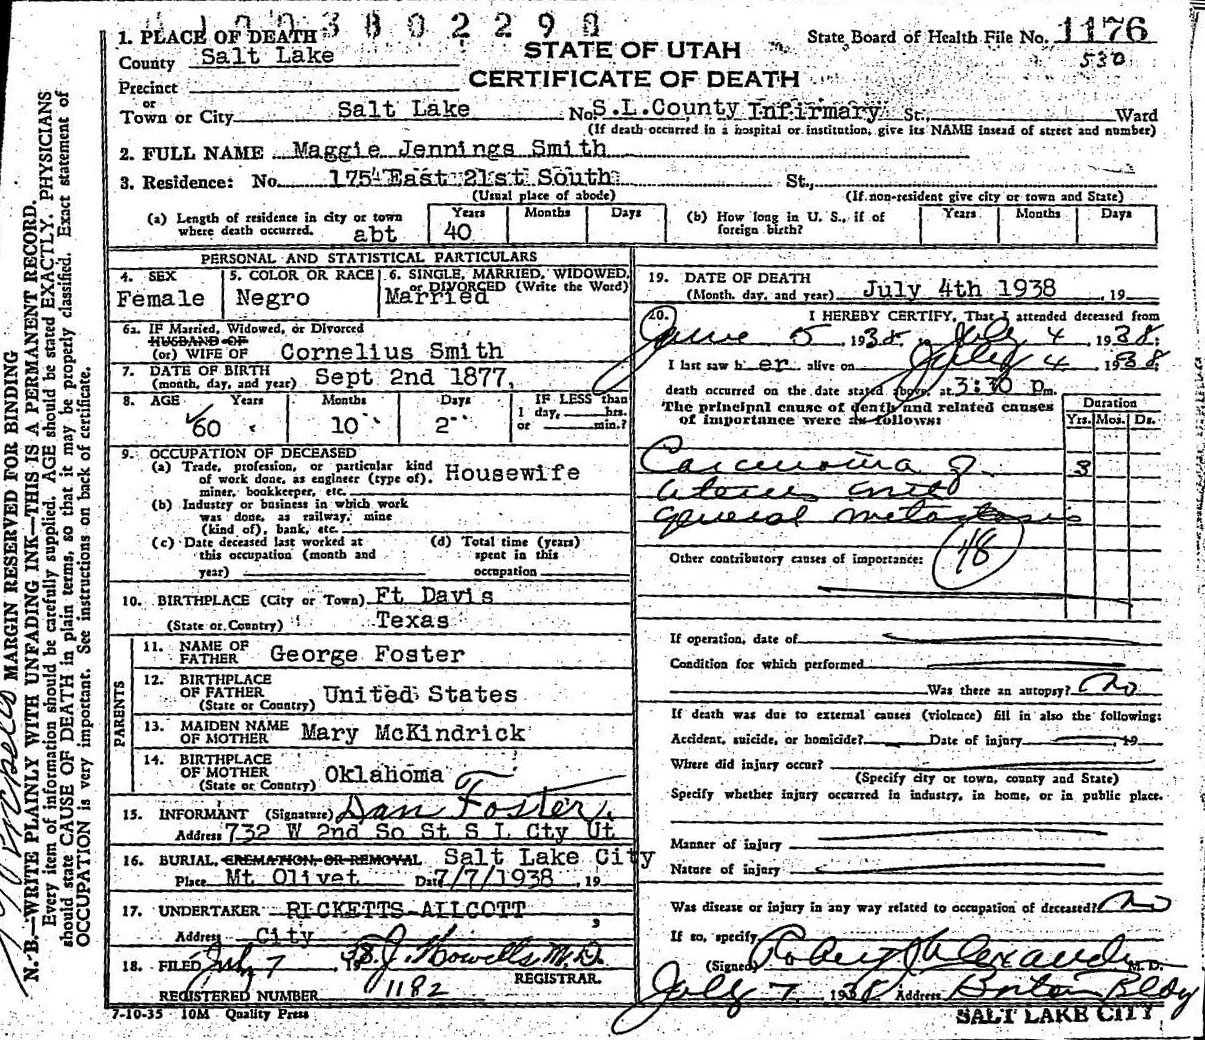 1003802298
1. PLACE OF DEATH
State Board of Health File No. 1176
530
County Salt Lake
STATE OF UTAH
CERTIFICATE OF DEATH
Precinct
or
Town or City Salt Lake No. S.L.County Infirmary St., Ward
(If death occurred in a hospital or institution, give its NAME insead of street and number)
2. FULL NAME Maggie Jennings Smith
3. Residence: No. 175 East 21st South St.,
(Usual place of abode) (If non-resident give city or town and State)
(a) Length of residence in city or town where death occurred. abt Years 40 Months Days
(b) How long in U. S., if of foreign birth? Years Months Days
PERSONAL AND STATISTICAL PARTICULARS
4. SEX Female
5. COLOR OR RACE Negro
6. SINGLE, MARRIED, WIDOWED, or DIVORCED (Write the Word) Married
6a. IF Married, Widowed, or Divorced
HUSBAND OF
(or) WIFE OF Cornelius Smith
7. DATE OF BIRTH
(month, day, and year) Sept 2nd 1877,
8. AGE Years 60 Months 10 Days 2 IF LESS than 1 day, hrs. or min.?
9. OCCUPATION OF DECEASED
(a) Trade, profession, or particular kind of work done, as engineer (type of), miner, bookkeeper, etc. Housewife
(b) Industry or business in which work was done, as railway, mine (kind of), bank, etc.
(c) Date deceased last worked at this occupation (month and year)
(d) Total time (years) spent in this occupation
10. BIRTHPLACE (City or Town) Ft Davis
(State or Country) Texas
PARENTS
11. NAME OF FATHER George Foster
12. BIRTHPLACE OF FATHER (State or Country) United States
13. MAIDEN NAME OF MOTHER Mary McKindrick
14. BIRTHPLACE OF MOTHER (State or Country) Oklahoma
15. INFORMANT (Signature) Dan Foster
Address 732 W 2nd So St S L Cty Ut
16. BURIAL, CREMATION, OR REMOVAL Salt Lake City
Place Mt Olivet Date 7/7/1938, 19
17. UNDERTAKER RICKETTS-AILCOTT
Address City
18. FILED July 7 1938 J. Howells, M.D.
REGISTRAR.
REGISTERED NUMBER 1182
7-10-35 10M Quality Press
19. DATE OF DEATH
(Month, day, and year) July 4th 1938, 19
20. I HEREBY CERTIFY, That I attended deceased from
June 5, 1938, July 4, 1938;
I last saw h er alive on July 4 1938
death occurred on the date stated above, at 3:30 pm.
The principal cause of death and related causes of importance were as follows:
Duration
Yrs. Mos. Ds.
Carcinoma of 3
uterus with
general metastasis
48
Other contributory causes of importance:
If operation, date of
Condition for which performed
Was there an autopsy? No
If death was due to external causes (violence) fill in also the following:
Accident, suicide, or homicide? Date of injury , 19
Where did injury occur?
(Specify city or town, county and State)
Specify whether injury occurred in industry, in home, or in public place.
Manner of injury
Nature of injury
Was disease or injury in any way related to occupation of deceased? No
If so, specify
(Signed) Robert J Alexander M. D.
July 7, 1938 Address Boston Bldg
SALT LAKE CITY
MARGIN RESERVED FOR BINDING
N. B.—WRITE PLAINLY WITH UNFADING INK—THIS IS A PERMANENT RECORD.
Every item of information should be carefully supplied. AGE should be stated EXACTLY. PHYSICIANS
should state CAUSE OF DEATH in plain terms, so that it may be properly classified. Exact statement of
OCCUPATION is very important. See instructions on back of certificate.